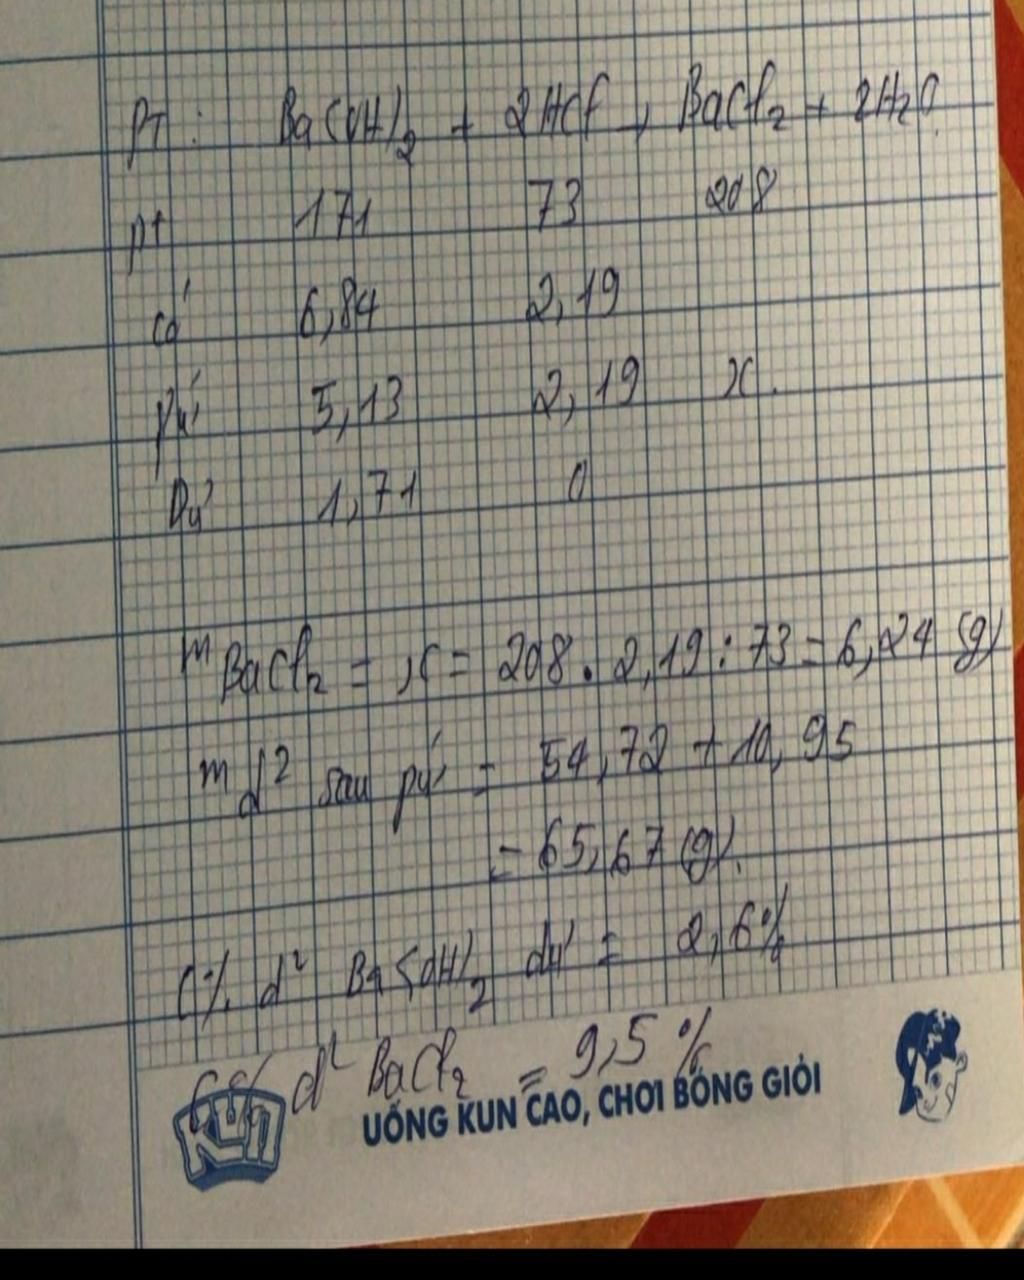 PT: Ba(OH)2 + 2HCl → BaCl2 + 2H2O
pt 171 73 208
có 6,84 2,19
pứ 5,13 2,19 x.
Dư 1,71 0
m BaCl2 = x = 208 . 2,19 : 73 = 6,24 (g)
m d2 sau pứ = 54,72 + 10,95
= 65,67 (g).
C% d2 Ba(OH)2 dư = 2,6%
C% d2 BaCl2 = 9,5%
Kun
UỐNG KUN CAO, CHƠI BÓNG GIỎI